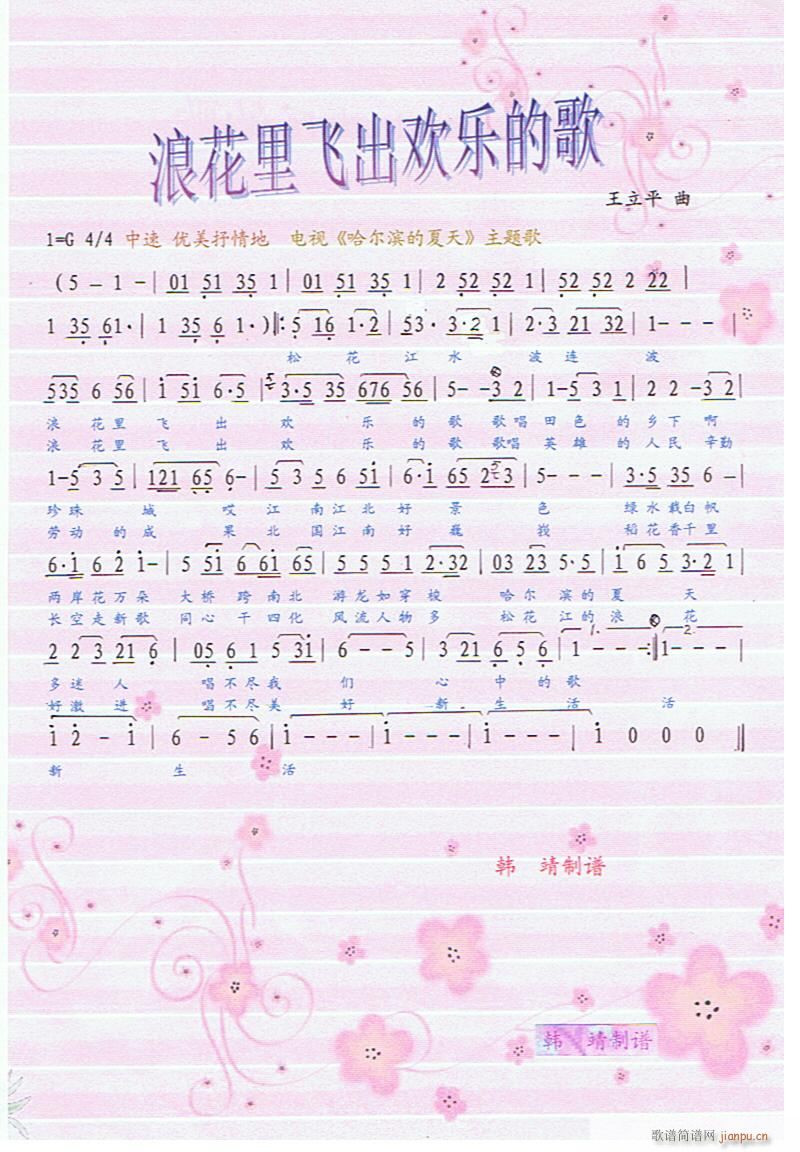 浪花里飞出欢乐的歌
王立平 曲
1=G 4/4 中速 优美抒情地 电视《哈尔滨的夏天》主题歌
(5 - 1 - | 01 51 35 1 | 01 51 35 1 | 2 52 52 1 | 52 52 2 22 |
1 35 61· | 1 35 6 1· )‖: 5 16 1·2 | 53· 3·2 1 | 2·3 21 32 | 1 - - - |
松 花 江 水 波 连 波
535 6 56 | 1 51 6·5 | 3·5 35 676 56 | 5 - - 3 2 | 1 - 5 3 1 | 2 2 - 3 2 |
浪 花 里 飞 出 欢 乐 的 歌 歌 唱 田 色 的 乡 下 啊
浪 花 里 飞 出 欢 乐 的 歌 歌 唱 英 雄 的 人 民 辛 勤
1 - 5 3 5 | 121 65 6 - | 5 3 5 6 51 | 6·1 65 2 3 | 5 - - - | 3·5 35 6 - |
珍 珠 城 哎 江 南 江 北 好 景 色 绿 水 载 白 帆
劳 动 的 成 果 北 国 江 南 好 巍 峩 稻 花 香 千 里
6·1 62 1 - | 5 51 6 61 65 | 5 5 5 1 2·32 | 03 23 5·5 | 1 6 5 3·2 1 |
两 岸 花 万 朵 大 桥 跨 南 北 游 龙 如 穿 梭 哈 尔 滨 的 夏 天
长 空 走 新 歌 同 心 干 四 化 风 流 人 物 多 松 花 江 的 浪 花
2 2 3 21 6 | 05 6 1 5 31 | 6 - - 5 | 3 21 6 5 6 | 1. 1 - - - :‖ 2. 1 - - - |
多 迷 人 唱 不 尽 我 们 心 中 的 歌
好 激 进 唱 不 尽 美 好 新 生 活 活
1 2 - 1 | 6 - 5 6 | 1 - - - | 1 - - - | 1 - - - | 1 0 0 0 ‖
新 生 活
韩 靖制谱
韩 靖制谱
歌谱简谱网 jianpu.cn